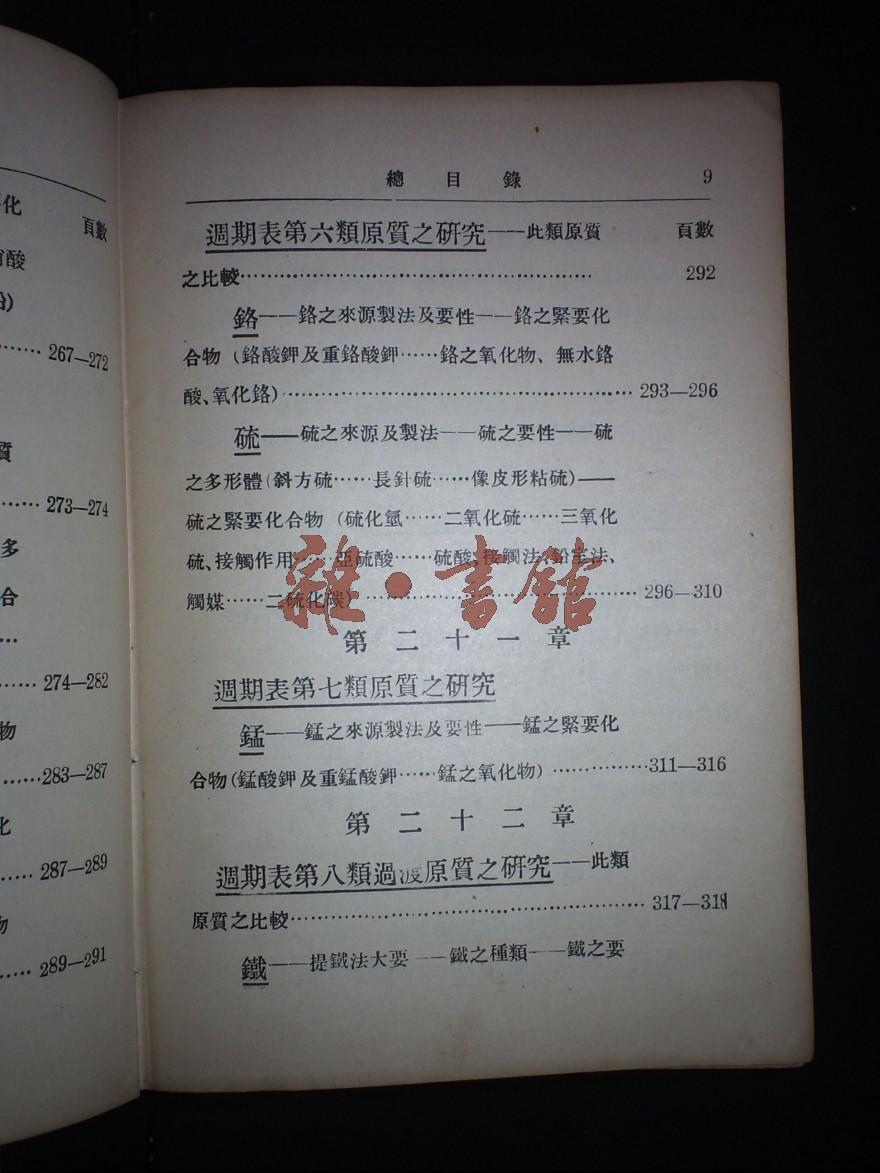 化
頁數
酸
267—272
質
273—274
多
合
274—282
物
283—287
化
287—289
物
289—291
總目錄 9
週期表第六類原質之研究——此類原質 頁數
之比較…………………………………………… 292
鉻——鉻之來源製法及要性——鉻之緊要化
合物(鉻酸鉀及重鉻酸鉀……鉻之氧化物、無水鉻
酸、氧化鉻)…………………………………………… 293—296
硫——硫之來源及製法——硫之要性——硫
之多形體(斜方硫……長針硫……像皮形粘硫)——
硫之緊要化合物(硫化氫……二氧化硫……三氧化
硫、接觸作用……亞硫酸……硫酸、接觸法、鉛室法、
觸媒……二硫化碳)…………………………………… 296—310
雜·書館
第二十一章
週期表第七類原質之研究
錳——錳之來源製法及要性——錳之緊要化
合物(錳酸鉀及重錳酸鉀……錳之氧化物)……………311—316
第二十二章
週期表第八類過渡原質之研究——此類
原質之比較…………………………………………… 317—318
鐵——提鐵法大要——鐵之種類——鐵之要